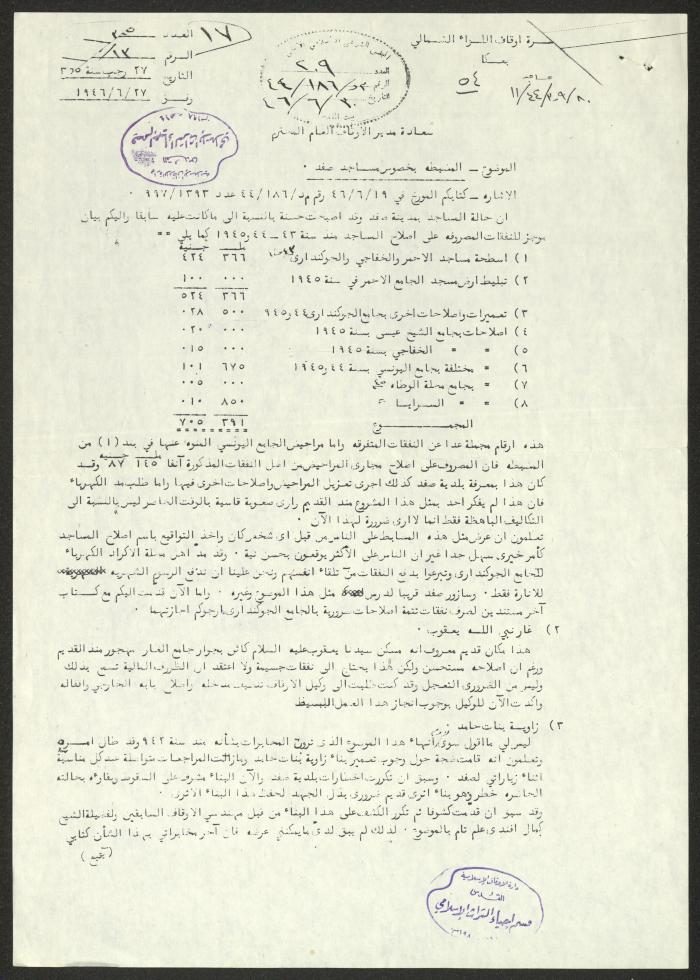 ١٧
العدد ٣٠٥
الرقم ١٣/
التاريخ ٢٧ رجب سنة ٣٦٥
١٩٤٦/٦/٢٧
اوقاف اللواء الشمالي
بعكا
مساجد
١١/٤٤/٣٠٩/٨٠
٥٤
المجلس الشرعي الاسلامي الاعلى
العدد ٢٠٩
الرقم ٤٤/١٨٦/٥٣
التاريخ ٤٦/٦/٣٠
بيت المقدس
سعادة مدير الاوقاف العام المحترم
الموضوع ــ المضبطه بخصوص مساجد صفد ٠
الاشاره ــ كتابكم المورخ في ٤٦/٦/١٩ رقم م د/٤٤/١٨٦ عدد ٩٦٧/١٣٩٣ ٠
ان حالة المساجد بمدينة صفد وقد اصبحت حسنة بالنسبة الى ما كانت عليه سابقا واليكم بيان
موجز للنفقات المصروفه على اصلاح المساجد منذ سنة ٤٣ ــ ٤٤ و ١٩٤٥ كما يلي ==
مل جنيه
١) اسطحة مساجد الاحمر والخفاجي والجوكنداري ٤٣ ٣٦٦ ٤٢٤
٢) تبليط ارض مسجد الجامع الاحمر في سنة ١٩٤٥ ٠٠٠ ١٠٠
٣٦٦ ٥٢٤
٣) تعميرات واصلاحات اخرى بجامع الجوكنداري ٤٤ و ٩٤٥ ٥٠٠ ٠٢٨
٤) اصلاحات بجامع الشيخ عيسى بسنة ١٩٤٥ ٠٠٠ ٠٢٠
٥) = = الخفاجي بسنة ١٩٤٥ ٠٠٠ ٠١٥
٦) = مختلفة بجامع اليونسي بسنة ٤٤ و ١٩٤٥ ٦٧٥ ١٠١
٧) = بجامع محلة الوطاه ٤٥ ٠٠٠ ٠٠٥
٨) = = السرايا = ٨٥٠ ٠١٠
المجمـــــوع ٣٩١ ٧٠٥
هذه ارقام مجملة عدا عن النفقات المتفرقه واما مراحيض الجامع اليونسي المنوه عنها في بند (١) من
المضبطه فان المصروف على اصلاح مجاري المراحيض من اصل النفقات المذكورة آنفا ١٤٥ مل ٨٧ جنيه وقد
كان هذا بمعرفة بلدية صفد كذلك اجرى تعزيل المراحيض واصلاحات اخرى فيها واما طلب مد الكهرباء
فان هذا لم يفكر احد بمثل هذا المشروع منذ القديم وارى صعوبة قاسية بالوقت الحاضر ليس بالنسبة الى
التكاليف الباهظة فقط انما لا ارى ضرورة لهذا الآن ٠
تعلمون ان عرض مثل هذه المضابط على الناس من قبل اي شخص كان واخذ التواقيع باسم اصلاح المساجد
كأمر خيري سهل جدا غير ان الناس على الأكثر يوقعون بحسن نية ٠ وقد مد اهل محلة الاكراد الكهرباء
للجامع الجوكنداري وتبرعوا بدفع النفقات من تلقاء انفسهم ونحن علينا ان ندفع الرسوم الشهريه
للانارة فقط ٠ وسازور صفد قريبا لدرس مثل هذا الموضوع وغيره ٠ واما الآن قدمت اليكم مع كتاب
آخر مستندين لصرف نفقات تتمة اصلاحات ضرورية بالجامع الجوكنداري ارجوكم اجازتهما ٠
٢) غار نبي اللـه يعقوب ٠
هذا مكان قديم معروف انه مسكن سيدنا يعقوب عليه السلام كائن بجوار جامع الغار مهجور منذ القديم
ورغم ان اصلاحه مستحسن ولكن هذا يحتاج الى نفقات جسيمة ولا اعتقد ان الظروف المالية تسمح بذلك
وليس من الضروري التعجل وقد كنت طلبت الى وكيل الاوقاف تنظيف مدخله واصلاح بابه الخارجي واقفاله
واكدت الآن للوكيل بوجوب انجاز هذا العمل البسيط
٣) زاوية بنات حامد :
ليس لي ما اقول سوى انهاء هذا الموضوع الذي تروج المخابرات بشأنه منذ سنة ٩٤٢ وقد طال امـــره
وتعلمون انه قامت ضجة حول وجوب تعمير بناء زاوية بنات حامد ومازالت المراجعات متواصلة عند كل مناسبة
اثناء زياراتي لصفد ٠ وسبق ان تكررت اخطارات بلدية صفد والآن البناء مشرف على السقوط وبقاءه بحالته
الحاضره خطر وهو بناء اثري قديم ضروري بذل الجهد لحفظ هذا البناء الاثري ٠
وقد سبق ان قدمت كشوفا ثم تكرر الكشف على هذا البناء من قبل مهندسي الاوقاف السابقين ولفضيلة الشيخ
كمال افندي علم تام بالموضوع ٠ لذلك لم يبق لدي ما يمكنني عرضه فان آخر مخابراتي بهذا الشأن كتابي
( يتبع )
وزارة الاوقاف الإسلامية
القدس
قسم إحياء التراث الإسلامي